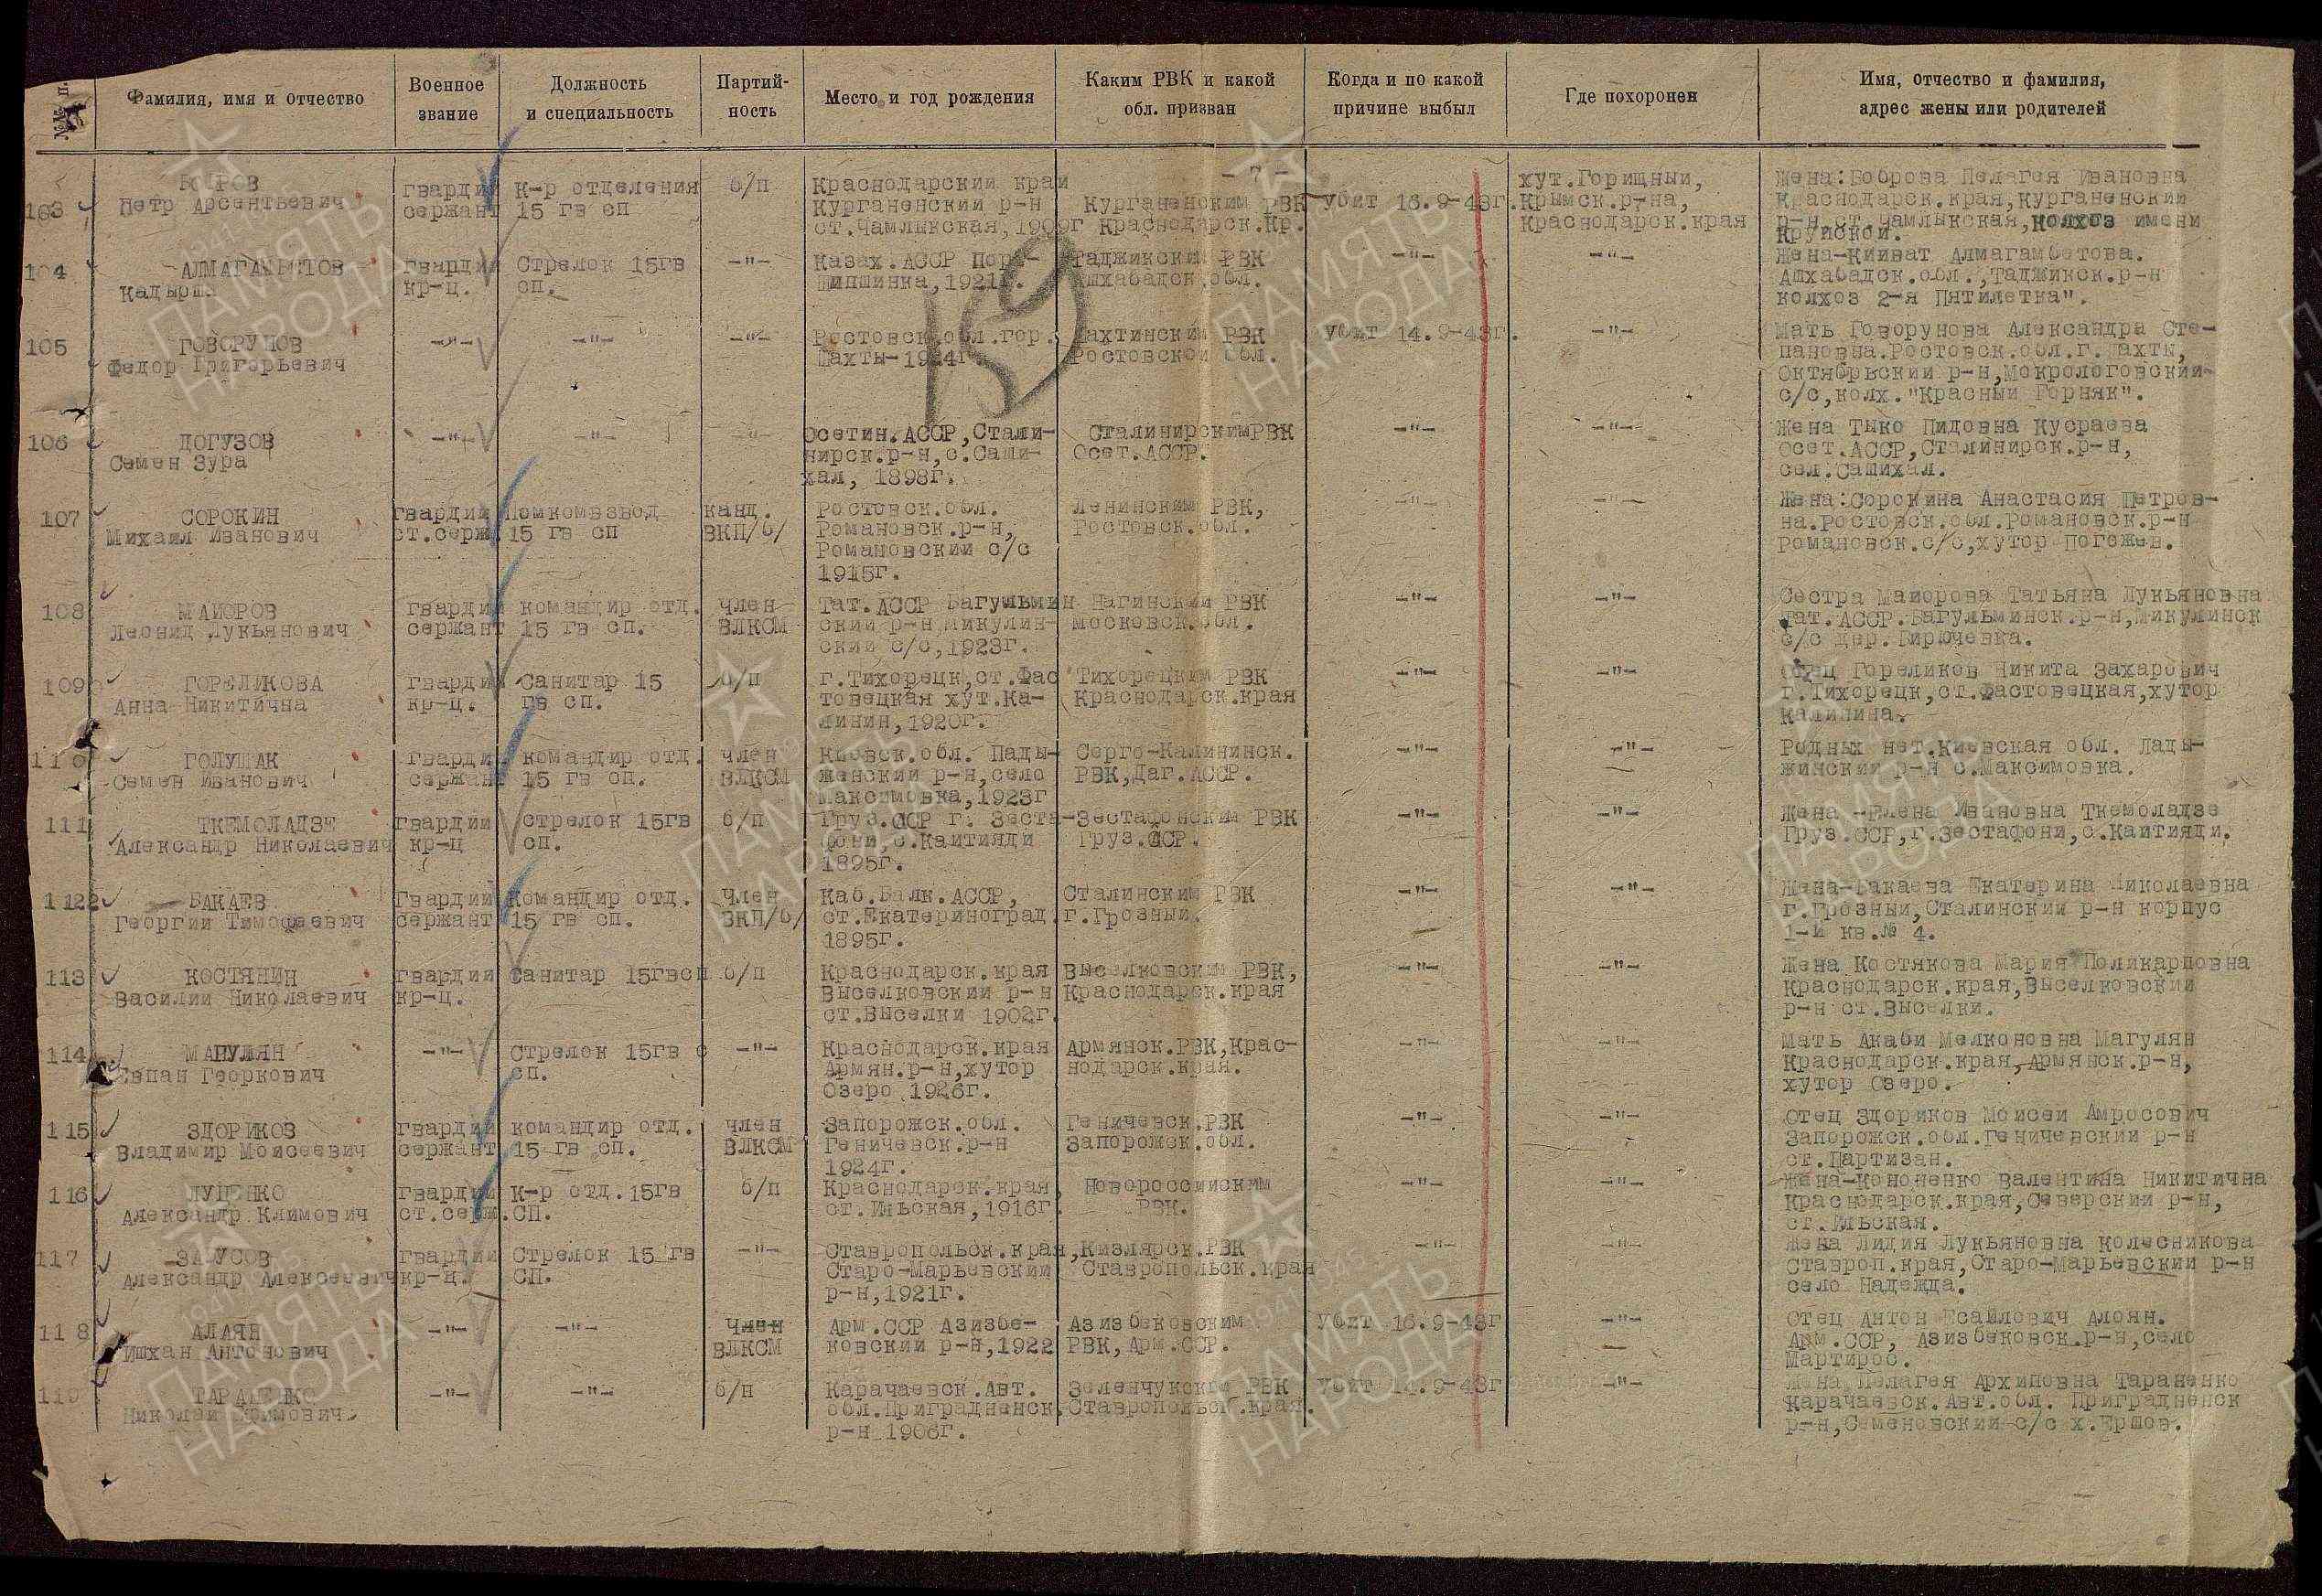 Фамилия, имя и отчество
Военное звание
Должность и специальность
Партий-ность
Место и год рождения
Каким РВК и какой обл. призван
Когда и по какой причине выбыл
Где похоронен
Имя, отчество и фамилия, адрес жены или родителей
- 7 -
19
103 Петр Арсентьевич гвардии сержант К-р отделения 15 гв сп б/п Краснодарский край Курганенский р-н ст.Чамлыкская, 1909г Курганенским РВК Краснодарск.Кр. Убит 16.9-43г. хут.Горищный, Крымск.р-на, Краснодарск.края Жена:Боброва Пелагея Ивановна Краснодарск.края,Курганенский р-н,ст.Чамлыкская,колхоз имени Крупской.
104 АЛМАГАМБЕТОВ гвардии кр-ц. Стрелок 15гв сп. -"- Казах.АССР 1921г. Таджикским РВК Ашхабадск.обл. -"- -"- Жена-Кииват Алмагамбетова. Ашхабадск.обл.,Таджикск.р-н колхоз 2-я Пятилетка".
105 ГОВОРУНОВ Федор Григорьевич -"- -"- -"- Ростовск.обл.гор. Шахты-1924г. Шахтинским РВК Ростовской обл. Убит 14.9-43г. -"- Мать Говорунова Александра Сте-пановна.Ростовск.обл.г.Шахты, Октябрьский р-н,Мокрологовский с/с,колх."Красный Горняк".
106 ДОГУЗОВ Семен Зура -"- -"- -"- Осетин.АССР,Стали-нирск.р-н,с.Саши-хал, 1898г. СталинирскимРВК Осет.АССР. -"- -"- Жена Тыко Пидовна Кусраева Осет.АССР,Сталинирск.р-н, сел.Сашихал.
107 СОРОКИН Михаил Иванович гвардии ст.серж. Помкомвзвод 15 гв сп канд. ВКП/б/ Ростовск.обл. Романовск.р-н, Романовский с/с 1915г. Ленинским РВК, Ростовск.обл. -"- -"- Жена:Сорокина Анастасия Петров-на.Ростовск.обл.Романовск.р-н Романовск.с/с,хутор Погожев.
108 МАЙОРОВ Леонид Лукьянович гвардии сержант командир отд. 15 гв сп. член ВЛКСМ Тат.АССР Багульмин ский р-н Микулин-ский с/с,1923г. Нагинский РВК Московск.обл. -"- -"- Сестра Майорова Татьяна Лукьяновна Тат.АССР.Багульминск.р-н,Микулинск с/с дер.Бирючевка.
109 ГОРЕЛИКОВА Анна Никитична гвардии кр-ц. Санитар 15 гв сп. б/п г.Тихорецк,ст.Фас товецкая хут.Ка-линин,1920г. Тихорецким РВК Краснодарск.края -"- -"- Отец Гореликов Никита Захарович г.Тихорецк,ст.Фастовецкая,хутор Калинина.
110 ГОЛУШАК Семен Иванович гвардии сержант командир отд. 15 гв сп. член ВЛКСМ Киевск.обл. Лады-женский р-н,село Максимовка,1923г Серго-Калининск. РВК,Даг.АССР. -"- -"- Родных нет.Киевская обл. Лады-жинский р-н с.Максимовка.
111 ТКЕМОЛАДЗЕ Александр Николаевич гвардии кр-ц стрелок 15гв сп. б/п Груз.ССР г. Зеста-фони,с.Каитияди 1895г. Зестафонским РВК Груз.ССР. -"- -"- Жена -Елена Ивановна Ткемоладзе Груз.ССР,г.Зестафони,с.Каитияди.
112 БАКАЕВ Георгий Тимофеевич Гвардии сержант Командир отд. 15 гв сп. Член ВКП/б/ Каб.Балк.АССР, ст.Екатериноград. 1895г. Сталинским РВК г.Грозный. -"- -"- Жена-Бакаева Екатерина Николаевна г.Грозный,Сталинский р-н корпус 1-й кв.№ 4.
113 КОСТЯНИН Василий Николаевич гвардии кр-ц. Санитар 15гвсп б/п Краснодарск.края Выселковский р-н ст.Выселки 1902г. Выселковским РВК, Краснодарск.края -"- -"- Жена Костякова Мария Поликарповна Краснодарск.края,Выселковский р-н ст.Выселки.
114 Георкович -"- Стрелок 15гв с сп. -"- Краснодарск.края Армян.р-н,хутор Озеро 1926г. Армянск.РВК,Крас-нодарск.края. -"- -"- Мать Акаби Мелконовна Магулян Краснодарск.края,Армянск.р-н, хутор Озеро.
115 ЗДОРИКОВ Владимир Моисеевич гвардии сержант командир отд. 15 гв сп. член ВЛКСМ Запорожск.обл. Геническ.р-н 1924г. Геничевск.РВК Запорожск.обл. -"- -"- Отец Здориков Моисей Амросович Запорожск.обл.Геничевский р-н ст.Партизан.
116 ЛУЦЕНКО Александр Климович гвардии ст.серж. К-р отд.15гв СП. б/п Краснодарск.края, ст.Ильская,1916г. Новороссийским РВК. -"- -"- Жена-Кононенко Валентина Никитична Краснодарск.края,Северский р-н, ст.Ильская.
117 Александр Алексеевич гвардии кр-ц. Стрелок 15 гв СП. -"- Ставропольск.края, Старо-Марьевский р-н,1921г. Кизлярск.РВК Ставропольск.края -"- -"- Жена Лидия Лукьяновна Колесникова Ставроп.края,Старо-Марьевский р-н село Надежда.
118 АЛАЯН Ишхан Антонович -"- -"- Член ВЛКСМ Арм.ССР Азизбе-ковский р-н,1922 Азизбековским РВК, Арм.ССР. Убит 16.9-43г -"- Отец Антон Есайлович Алоян. Арм.ССР, Азизбековск.р-н,село Мартирос.
119 ТАРАНЕНКО Николай Ефимович -"- -"- б/п Карачаевск.Авт. обл.Приграднснск. р-н 1906г. Зеленчукским РВК Ставропольск.края. Убит 14.9-43г -"- Жена Пелагея Архиповна Тараненко Карачаевск.Авт.обл. р-н,Семеновский с/с х.Ершов.
ПАМЯТЬ НАРОДА